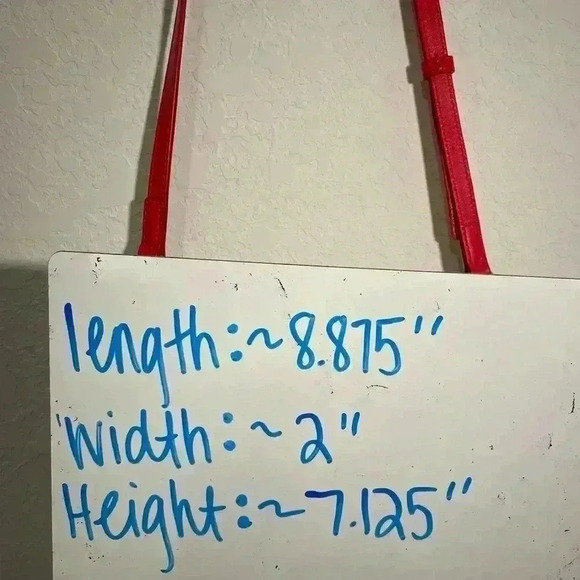 length:~8.875"
Width:~2"
Height:~7.125"